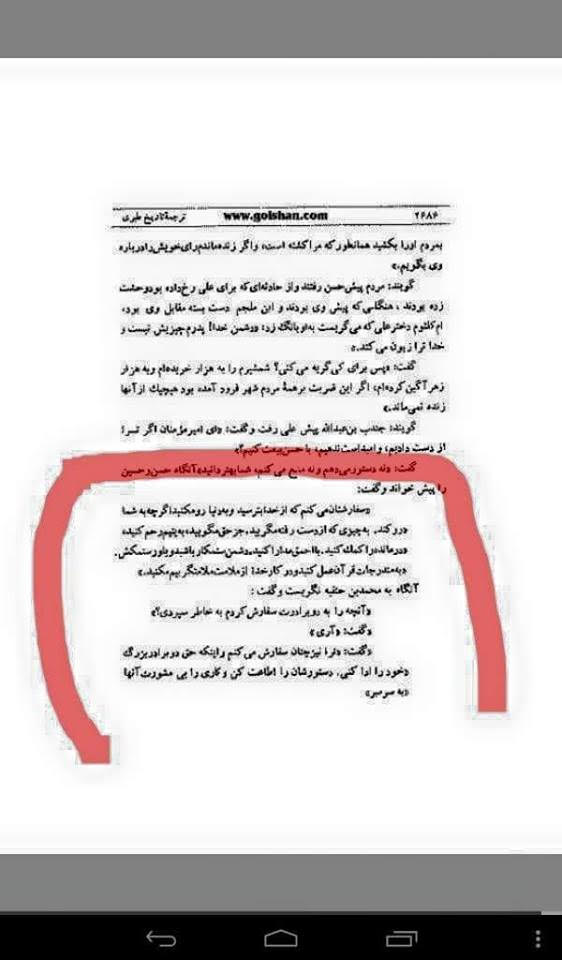 ۲۶۸۶ www.golshan.com ترجمهٔ تاریخ طبری
بمردم اورا بکشید همانطور که مرا کشته است، واگر زنده ماندم رای خویش را درباره
وی بگویم.»
گویند: مردم پیش حسن رفتند واز حادثه‌ای که برای علی رخ داده بود وحشت
زده بودند، هنگامی که پیش وی بودند و ابن ملجم دست بسته مقابل وی بود،
ام کلثوم دختر علی که می گریست به او بانگ زد: «دشمن خدا! پدرم چیزیش نیست و
خدا ترا زبون می کند.»
گفت: «پس برای کی گریه می کنی؟ شمشیرم را به هزار خریده‌ام وبه هزار
زهر آگین کرده‌ام، اگر این ضربت بر همهٔ مردم شهر فرود آمده بود هیچیک از آنها
زنده نمی ماند.»
گویند: جندب بن عبدالله پیش علی رفت و گفت: «ای امیر مؤمنان اگر ترا
از دست دادیم، و امید است ندهیم، با حسن بیعت کنیم؟»
گفت: «نه دستور می دهم و نه منع می کنم، شما بهتر دانید» آنگاه حسن و حسین
را پیش خواند و گفت:
«سفارشتان می کنم که از خدا بترسید و به دنیا رو مکنید اگر چه به شما
«رو کند. به چیزی که از دست رفته مگریید. جز حق مگویید، به یتیم رحم کنید،
«درمانده را کمک کنید. با احمق مدارا کنید، دشمن ستمکار باشید و یاور ستمکش.
«به مندرجات قرآن عمل کنید و در کار خدا از ملامت ملامتگر بیم مکنید.»
آنگاه به محمد بن حنفیه نگریست و گفت:
«آنچه را به دو برادرت سفارش کردم به خاطر سپردی؟»
«گفت: «آری»
«گفت: «ترا نیز چنان سفارش می کنم و اینکه حق دو برادر بزرگ
«خود را ادا کنی. دستورشان را اطاعت کن و کاری را بی مشورت آنها
«به سر مبر»